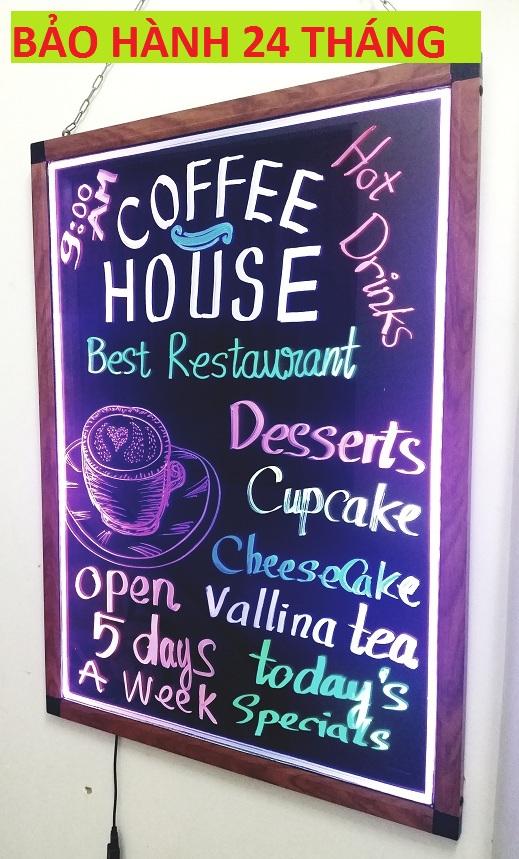 BẢO HÀNH 24 THÁNG
9:00
AM
COFFEE
HOUSE
Hot Drinks
Best Restaurant
Desserts
Cupcake
CheeseCake
Vallina tea
today's
Specials
Open
5 days
A Week